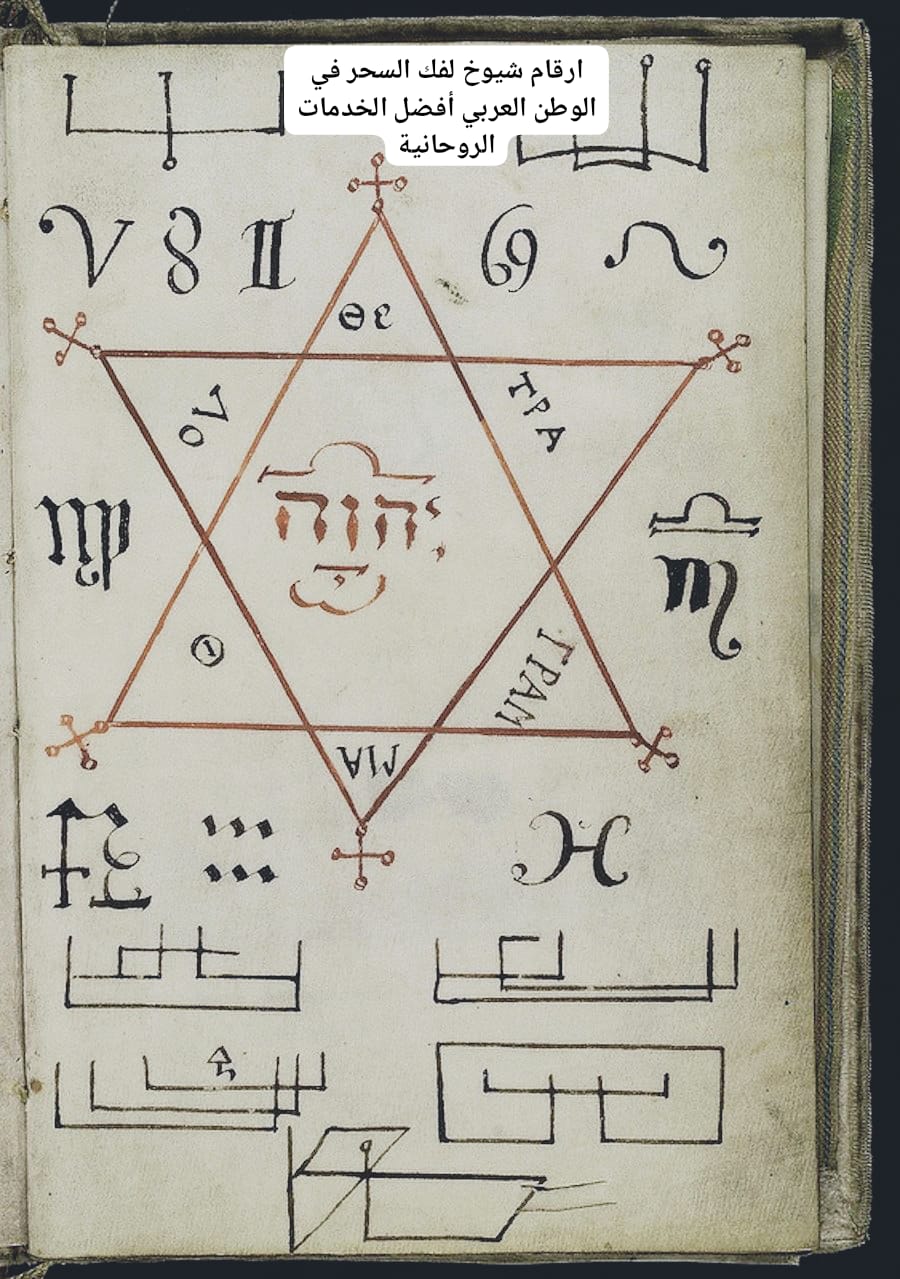 ارقام شيوخ لفك السحر في
الوطن العربي أفضل الخدمات
الروحانية
ΤΡΑ
יהוה
ΓΡΑΜ
ΜΑ